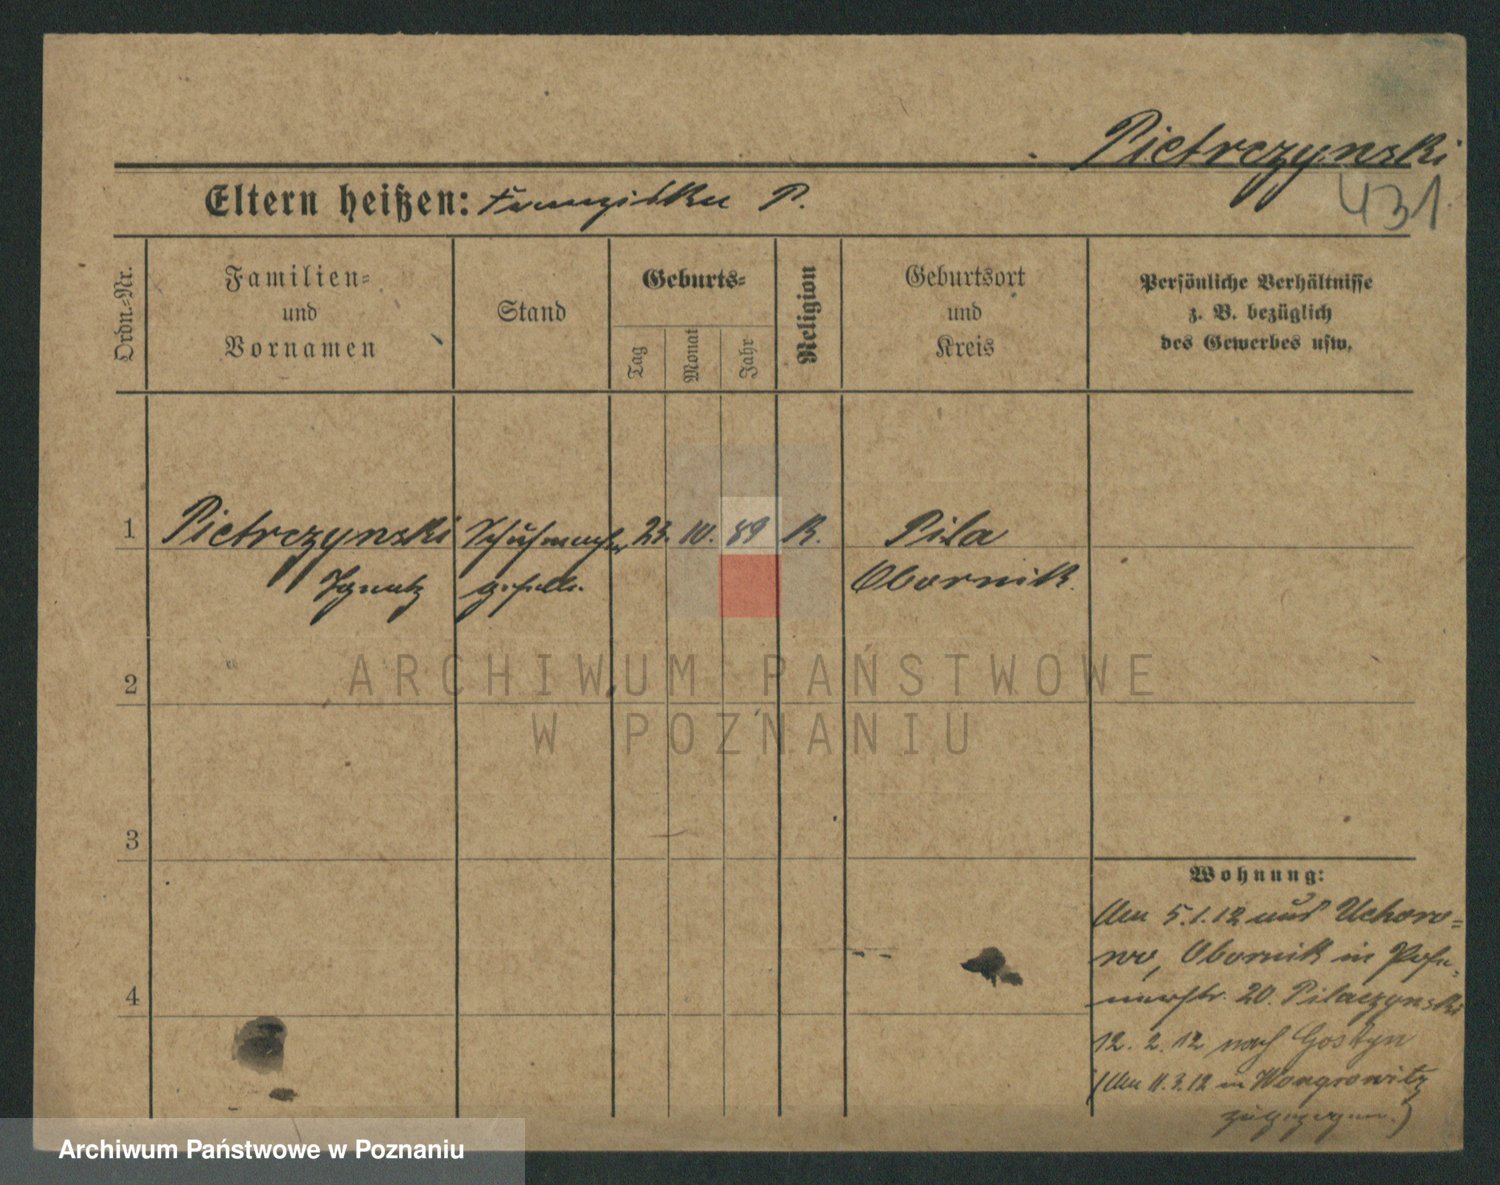 Pietrczynski
431.
Eltern heißen: Franziska P.
Ordn.-Nr.
Familien-
und
Vornamen
Stand
Geburts-
Tag
Monat
Jahr
Religion
Geburtsort
und
Kreis
Persönliche Verhältnisse
z. B. bezüglich
des Gewerbes usw.
1 Pietrczynski Schuhmacher 23. 10. 89 R. Pila
Ignatz geselle. Obornik.
ARCHIWUM PAŃSTWOWE
W POZNANIU
2
3
4
Wohnung:
Am 5.1.12 aus Uchoro=
wo, Obornik in Pose=
nerstr. 20. Pilaczynski
12. 2. 12 nach Gostyn
(Am 11.3.12 in Wongrowitz
zugezogen.)
Archiwum Państwowe w Poznaniu